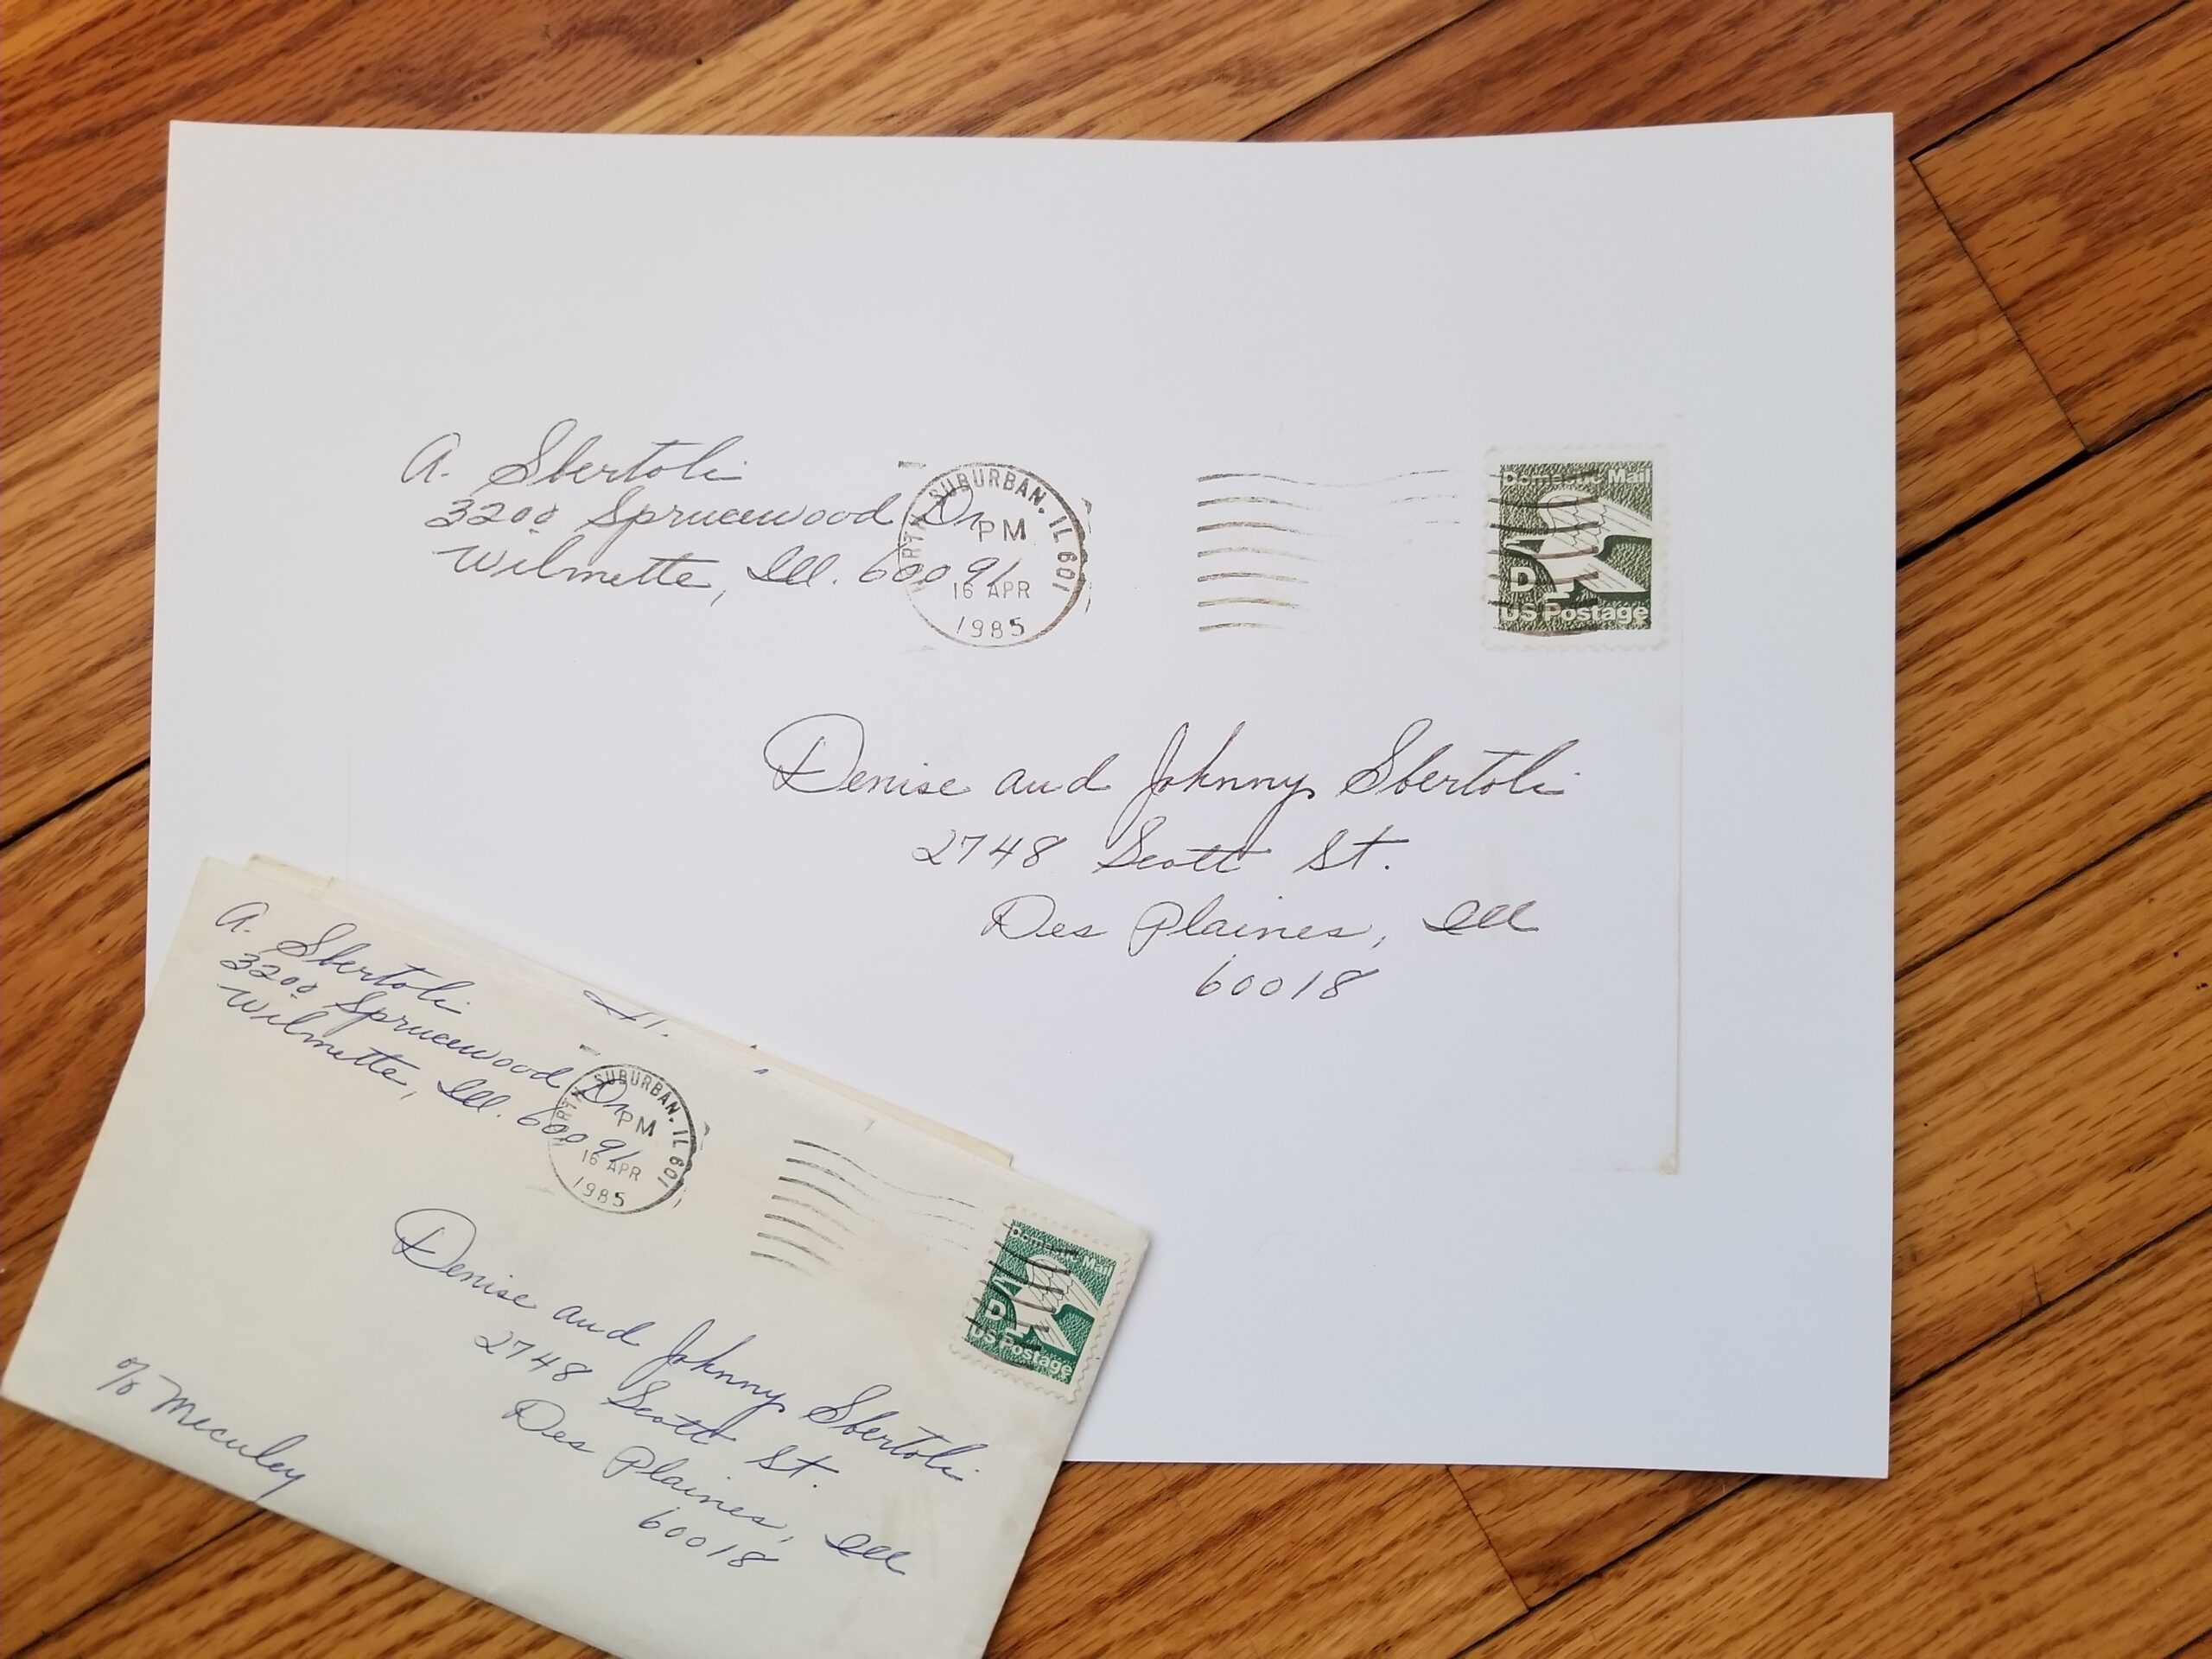 A. Sbertoli
3200 Sprucewood Dr
Wilmette, Ill. 60091
SUBURBAN, IL 601
PM
16 APR
1985
Domestic Mail
D
US Postage
Denise and Johnny Sbertoli
2748 Scott St.
Des Plaines, Ill
60018
A. Sbertoli
3200 Sprucewood Dr
Wilmette, Ill. 60091
SUBURBAN, IL 601
PM
16 APR
1985
Domestic Mail
D
US Postage
Denise and Johnny Sbertoli
2748 Scott St.
Des Plaines, Ill
60018
% Meculey